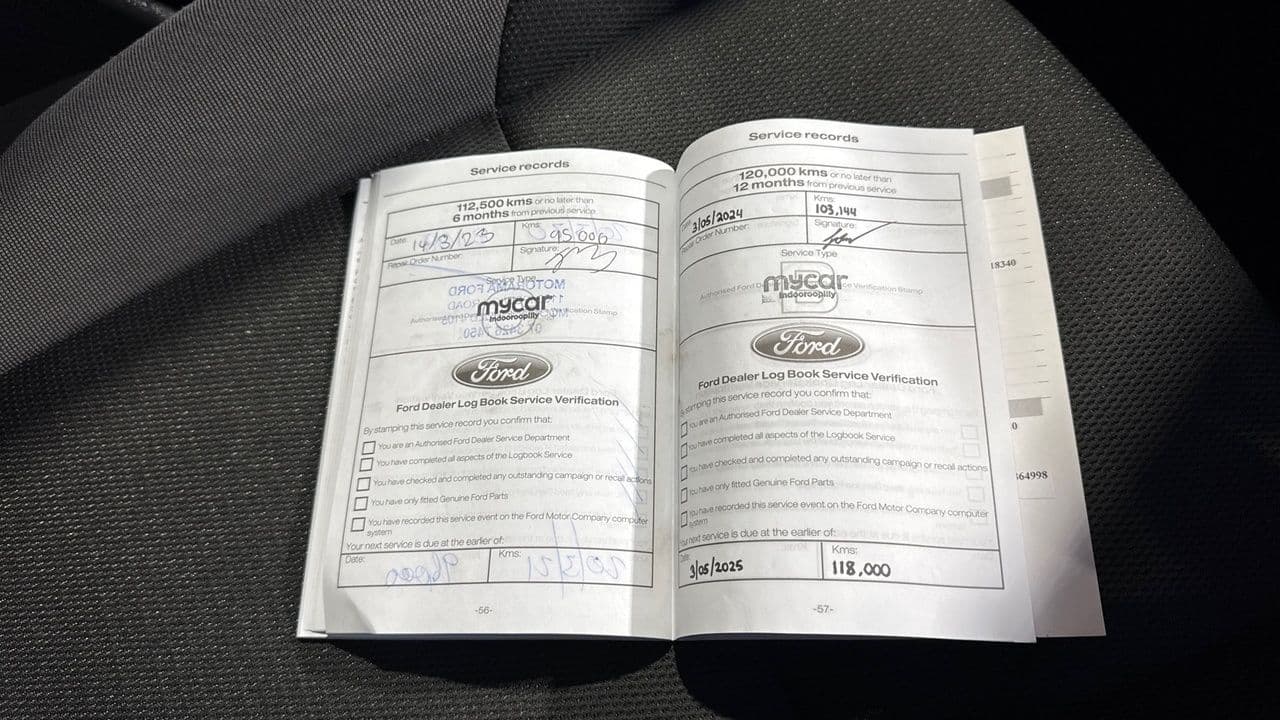 Service records
112,500 kms or no later than
6 months from previous service
Date: 14/3/23
Kms: 95,000
Repair Order Number:
Signature:
Service Type
mycar
Indooroopilly
Ford
Ford Dealer Log Book Service Verification
By stamping this service record you confirm that:
You are an Authorised Ford Dealer Service Department
You have completed all aspects of the Logbook Service
You have checked and completed any outstanding campaign or recall actions
You have only fitted Genuine Ford Parts
You have recorded this service event on the Ford Motor Company computer
system
Your next service is due at the earlier of:
Date:
Kms:
-56-
Service records
120,000 kms or no later than
12 months from previous service
Date: 3/05/2024
Kms:
103,144
Repair Order Number:
Signature:
Service Type
Authorised Ford D
ce Verification Stamp
mycar
Indooroopilly
Ford
Ford Dealer Log Book Service Verification
By stamping this service record you confirm that:
You are an Authorised Ford Dealer Service Department
You have completed all aspects of the Logbook Service
You have checked and completed any outstanding campaign or recall actions
You have only fitted Genuine Ford Parts
You have recorded this service event on the Ford Motor Company computer
system
Your next service is due at the earlier of:
Date:
3/05/2025
Kms:
118,000
-57-
18340
0
364998